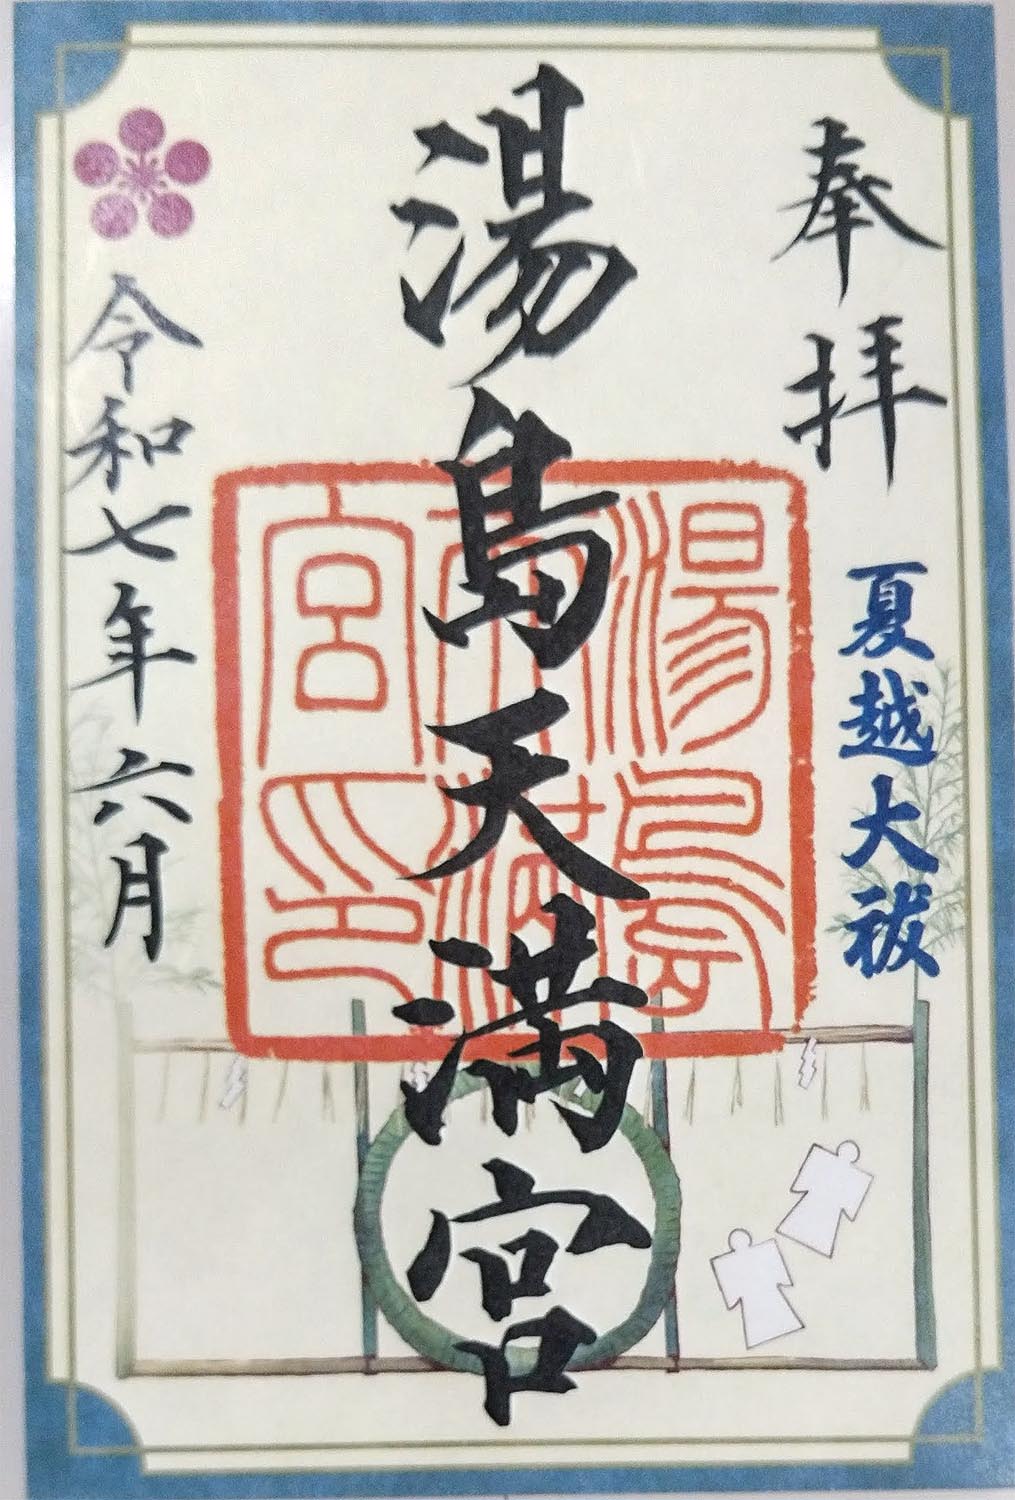 奉拝
夏越大祓
湯島天満宮
湯島天満宮印
令和七年六月